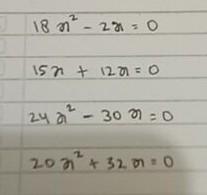 18x² - 2x = 0
15x + 12x = 0
24x² - 30x = 0
20x² + 32x = 0